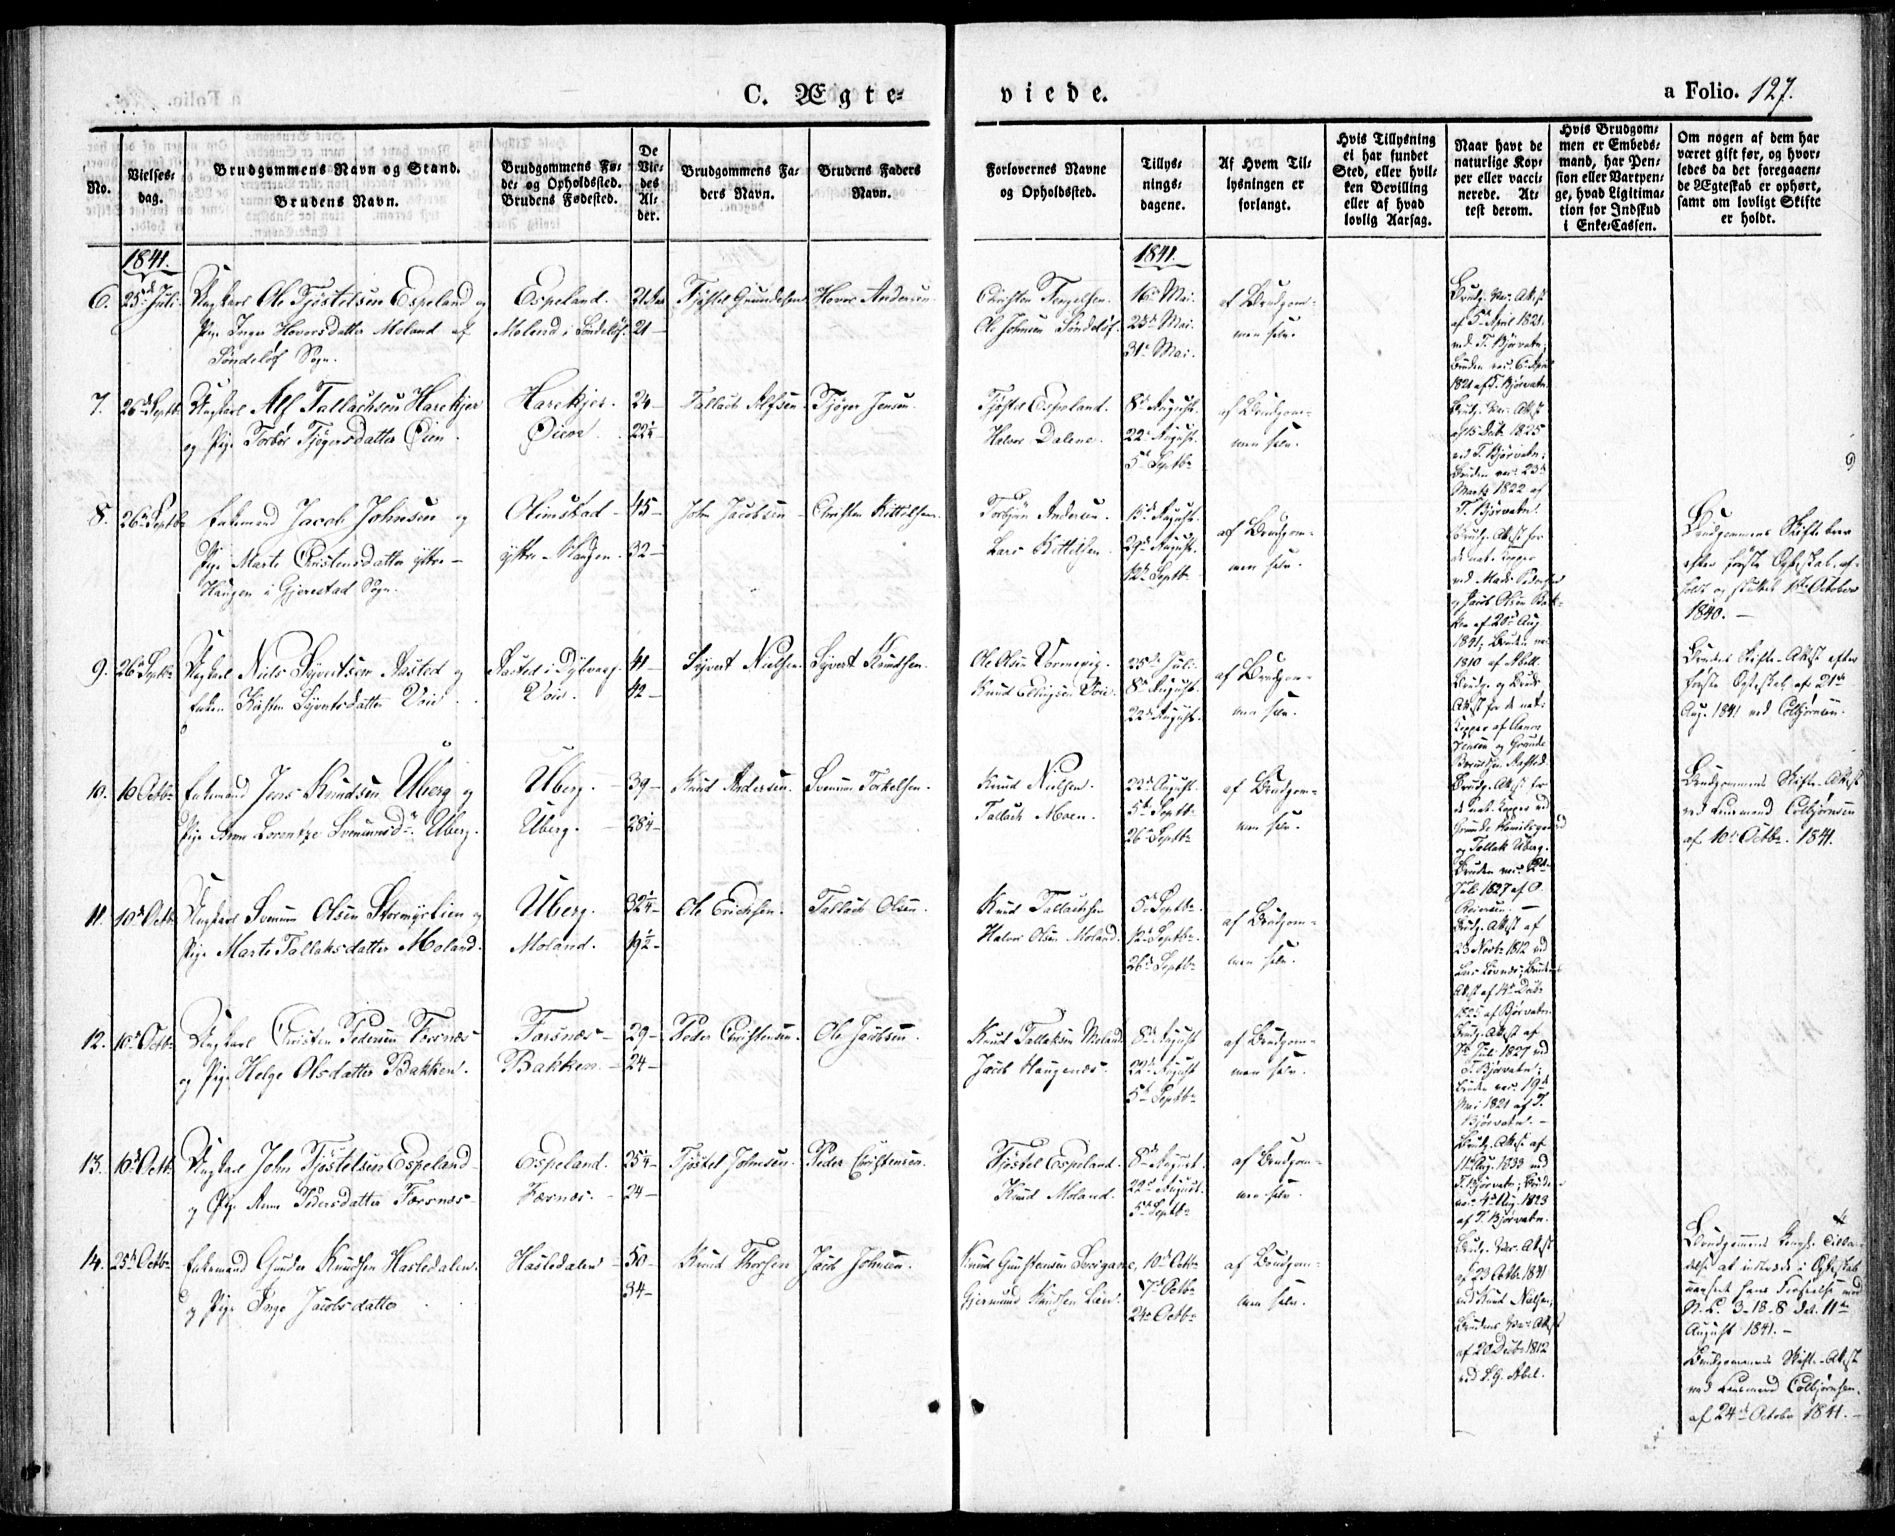 C. Ægte-
viede.
a Folio. 127.
No.
Vielses-
dag.
Brudgommens Navn og Stand.
Brudens Navn.
Brudgommens Fø-
de- og Opholdsted.
Brudens Fødested.
De
Vie-
des
Al-
der.
Brudgommens Fa-
ders Navn.
Brudens Faders
Navn.
Forlovernes Navne
og Opholdsted.
Tillys-
nings-
dagene.
Af Hvem Til-
lysningen er
forlangt.
Hvis Tillysning
ei har fundet
Sted, eller hvil-
ken Bevilling
eller af hvad
lovlig Aarsag.
Naar havt de
naturlige Kop-
per eller vacci-
nerede. At-
test derom.
Hvis Brudgom-
men er Embeds-
mand, har Pen-
sion eller Vartpen-
ge, hvad Ligitima-
tion for Indskud
i Enke-Cassen.
Om nogen af dem har
været gift før, og hvor-
ledes da det foregaaen-
de Ægteskab er ophørt,
samt om lovligt Skifte
er holdt.
1841.
1841.
6. 25de Juli Ungkarl Ole Tjøstelsen Espeland og
Pige Inger Hoversdatter Moland af
Søndeløf Sogn.
Espeland.
Moland i Søndeløf.
21 Aar
21
Tjøstel Grundesen
Hover Andersen
Christen Tengelsen.
Ole Johnsen Søndeløf.
16de Mai.
23de Mai.
31te Mai.
af Brudgom-
men selv.
Brudg. Vac. Attest
af 5te April 1821.
ved T. Bjørvatn;
Bruden vac. 6 Apr
1821 af T. Bjørvatn.
7. 26de Septbr Ungkarl Alf Tallachsen Harekjer
og Pige Torbør Tjøgersdatter Øien.
Harekjer.
Øien.
24
22¼
Tallach Alfsen
Tjøger Jensen.
Tjøstel Espeland.
Halvor Dalene.
8de August.
22de August.
5te Septbr
af Brudgom-
men selv.
Brudg. Vac. Attest
af 15 Octb. 1825
ved T. Bjørvatn;
Bruden vac. 23de
Marts 1822 af
T. Bjørvatn.
8. 26de Septbr Enkemand Jacob Johnsen og
Pige Marte Christensdatter ystre-
Haugen i Gjerestad Sogn.
Olimstad
ystre-Haugen.
45
32
John Jacobsen
Christen Kittelsen.
Torbjørn Andersen.
Lars Kittelsen.
15de August.
29de August.
12te Septb.
af Brudgom-
men selv.
Brudg. Attest for
de nat. Kopper
ved Mads Pedersen
og Jacob Olsen
af 20de Aug
1841; Bruden vac.
1810 af Abel.
Brudgommens Skiftebrev
efter første Ægteskab, af-
holdt og sluttet 1ste October
1840.
9. 26de Septbr Ungkarl Niels Syvertsen Aasted og
Enken Kirsten Syvertsdatter Voie
Aasted i Dybvaag.
Voie.
41
42
Syvert Nielsen
Syvert Knudsen.
Ole Olsen Vormevig.
25de Juli.
8de August.
22de August.
af Brudgom-
men selv.
Brudg. og Bruds
Attest for de nat.
Kopper af
Jensen og Grunde
Aasted
Brudens Skifte-Attest efter
første Ægteskab, af 21de
Aug. 1841 ved Colbjørnsen.
10. 10 Octbr Enkemand Jens Knudsen Uberg og
Pige Anne Lorentze Svenumsdr Uberg.
Uberg.
Uberg.
39
28¼
Knud Andersen.
Svenum Torkelsen.
Knud Nielsen.
Tallach Moen.
22de August.
5te Septb.
26de Septb.
af Brudgom-
men selv.
Brudg. Attest for
de nat. Kopper ved
Grunde
og Tallak Uberg.
Bruden vac.
Juli 1827 af O.
Brudgommens Skifte-Attest
ved Lensmand Colbjørnsen
af 10de Octbr. 1841.
11. 10de Octb. Ungkarl Svenum Olsen Stormyrlien og
Pige Marte Tallaksdatter Moland.
Uberg.
Moland.
32¼
19½
Ole Erichsen.
Tallach Olsen.
Knud Tallachsen
Halvor Olsen Moland.
5te Septb.
12te Septb.
26de Septb.
af Brudgom-
men selv.
Brudg. Attest af
23 Novbr 1812 ved
Attest af 14de Decbr
af Bjørvatn.
12. 16de Octbr Ungkarl Christen Pedersen Forsnæs
og Pige Helge Olsdatter Bakken.
Forsnæs
Bakken.
29
24
Peder Christensen.
Ole Jacobsen.
Knud Tallaksen Moland
Jacob Haugenes.
8de August
22de August
5te Septb.
af Brudgom-
men selv.
Brudg. Attest af
Juli 1827 ved
T. Bjørvatn;
Bruden vac. 19de
Mai 1821 af T.
Bjørvatn.
13. 16de Octb. Ungkarl John Tjøstelsen Espeland
og Pige Anne Pedersdatter Forsnæs
Espeland.
Forsnæs.
25¼
24
Tjøstel Johnsen.
Peder Christensen.
Tjøstel Espeland.
Knud Moland.
8de August.
22de August.
5te Septbr
af Brudgom-
men selv.
Brudg. Attest af
11te Aug. 1833 ved
T. Bjørvatn; Bruden
vac. 4de Aug. 1823
af T. Bjørvatn.
14. 25de Octbr Enkemand Gunder Knudsen Hasledalen
og Pige Inge Jacobsdatter
Hasledalen
50
34
Knud Thorsen
Jacob Johnsen.
Gjermund Knudsen Lien.
10de Octbr
17de Octbr
24de Octbr
af Brudgom-
men selv.
Brudg. Vac. Attest
af 23 Octb. 1841
ved Knud Nielsen;
Brudens Vac. Attest
af 20 Decbr 1812
ved P. G. Abel.
Brudgommens Kongl. Tilla-
delse at indtræde i Ægteskab
uanseet hans Forseelse mod
N. L. 3-18-8 dat. 11te
August 1841.
Brudgommens Skifte-Attest
ved Lensmand Colbjørnsen
af 24de October 1841.